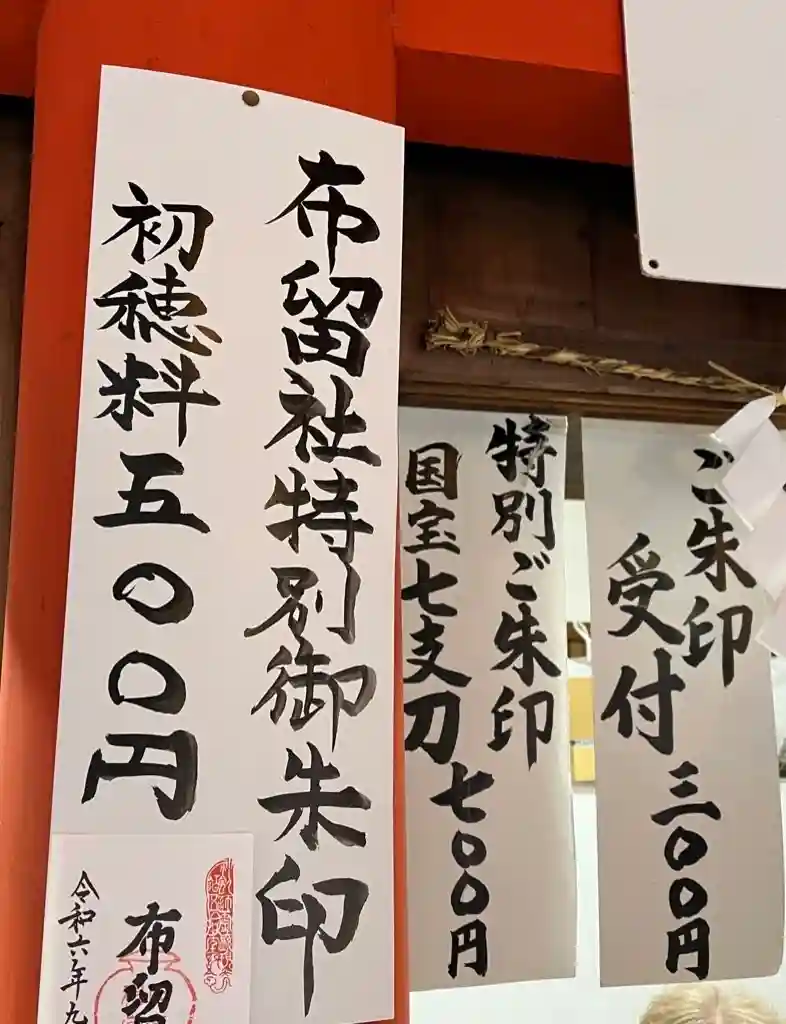 ご朱印
受付
三〇〇円
特別ご朱印
国宝七支刀
七〇〇円
布留社特別御朱印
初穂料五〇〇円
布留
令和六年九